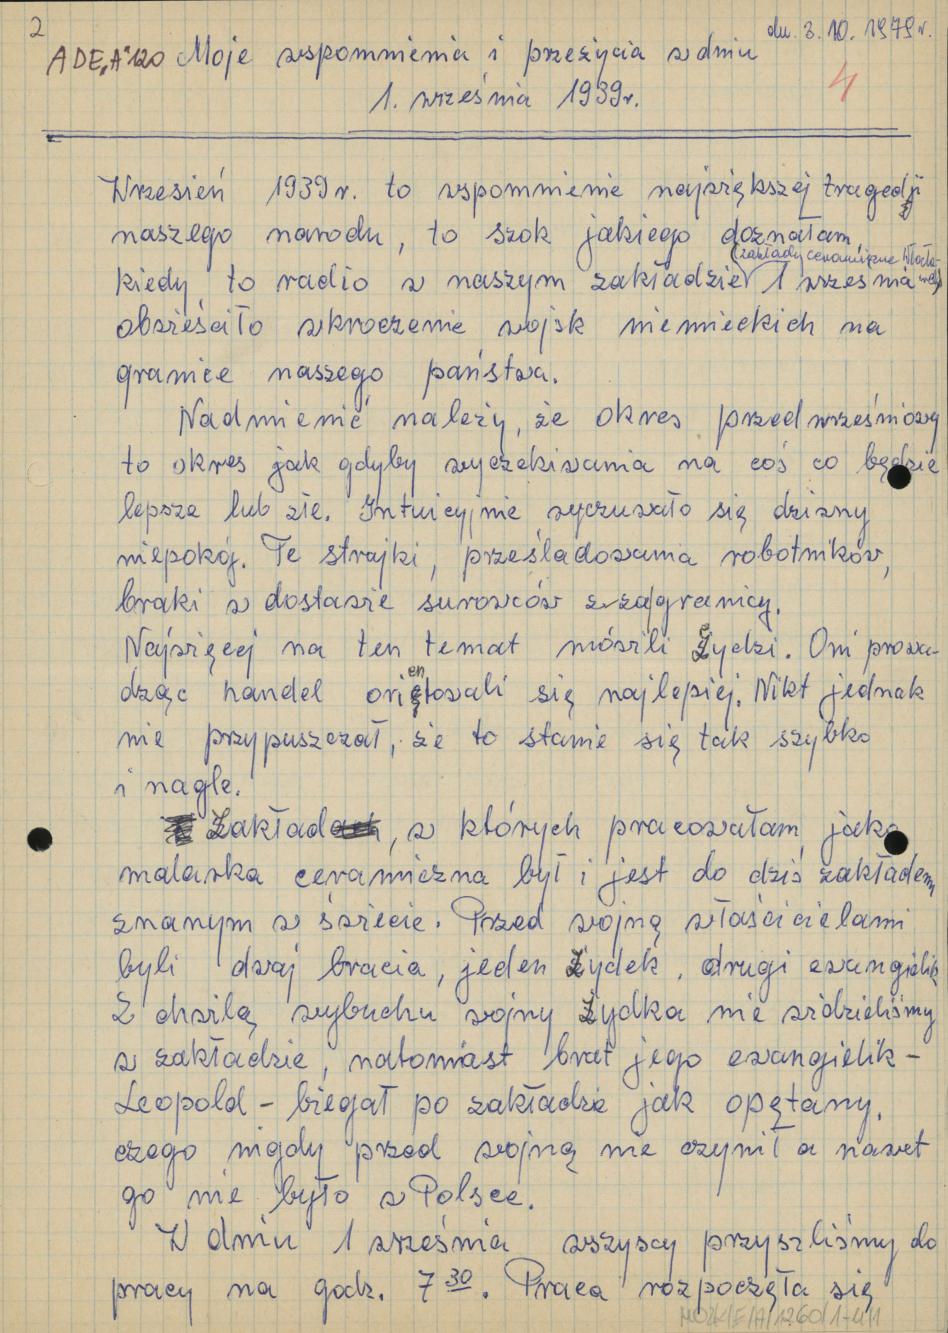 2
dn. 3.10.1979 r.
ADE„A"120 Moje wspomnienia i przeżycia w dniu
1. września 1939r.
4
Wrzesień 1939 r. to wspomnienie największej tragedji
naszego narodu, to szok jakiego doznałam,
(zakłady ceramiczne Włocławek)
kiedy to radio w naszym zakładzie 1 września
obwieściło wkroczenie wojsk niemieckich na
granice naszego państwa.
Nadmienić należy, że okres przedwrześniowy
to okres jak gdyby wyczekiwania na coś co będzie
lepsze lub złe. Intuicyjnie wyczuwało się dziwny
niepokój. Te strajki, prześladowania robotników,
braki w dostawie surowców z zagranicy.
Najwięcej na ten temat mówili Żydzi. Oni prowa-
dząc handel orientowali się najlepiej. Nikt jednak
nie przypuszczał, że to stanie się tak szybko
i nagle.
Zakład, w których pracowałam jako
malarka ceramiczna był i jest do dziś zakładem
znanym w świecie. Przed wojną właścicielami
byli dwaj bracia, jeden Żydek, drugi ewangielik
Z chwilą wybuchu wojny Żydka nie widzieliśmy
w zakładzie, natomiast brat jego ewangielik -
Leopold - biegał po zakładzie jak opętany,
czego nigdy przed wojną nie czynił a nawet
go nie było w Polsce.
W dniu 1 września wszyscy przyszliśmy do
pracy na godz. 7 30. Praca rozpoczęła się
MOZK/E/A/1260/1-4/1